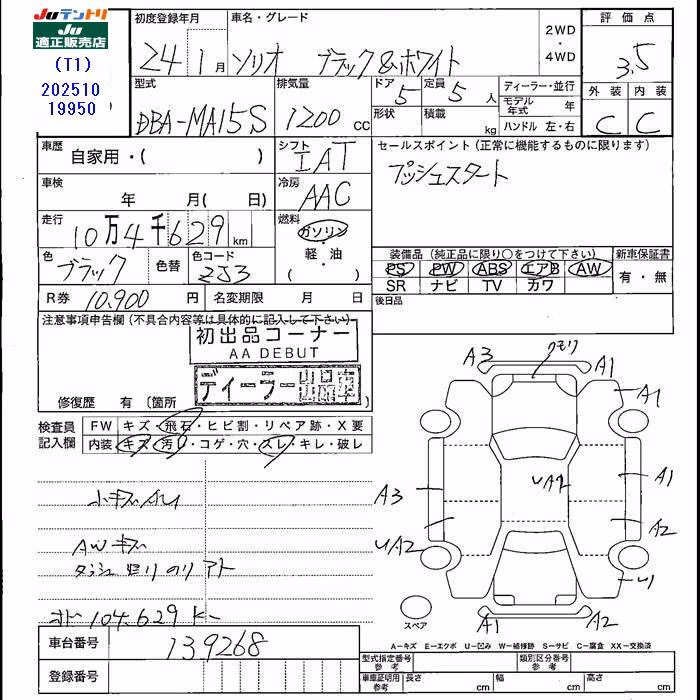 Juテントリ
Ju
適正販売店
(T1)
202510
19950
初度登録年月
24 1月
車名・グレード
ソリオ ブラック&ホワイト
2WD
・
4WD
評価点
3.5
外装 内装
C C
型式
DBA-MA15S
排気量
1200 cc
ドア
5
定員
5 人
形状
積載
kg
ディーラー・並行
モデル年式 年
ハンドル 左・右
車歴
自家用・( )
シフト
IAT
セールスポイント (正常に機能するものに限ります)
プッシュスタート
車検
年 月( 日)
冷房
AAC
走行
10万4千629 km
燃料
ガソリン
・
軽・油
( )
色
ブラック
色替
色コード
ZJ3
装備品 (純正品に限り○をつけて下さい)
PS PW ABS エアB AW
SR ナビ TV カワ
新車保証書
有・無
R券 10,900 円
名変期限 月 日
後日品
注意事項申告欄 (不具合内容等は具体的に記入して下さい)
初出品コーナー
AA DEBUT
ディーラー出品車
修復歴 有 (箇所 )
検査員
記入欄
FW キズ・飛石・ヒビ割・リペア跡・X要
内装 キズ・汚れ・コゲ・穴・スレ・キレ・破レ
小キズAU
AWキズ
ダッシュ モリ のり アト
オド 104,629 K
車台番号 139268
登録番号
クモリ
A3
A1
A1
UA2
A3
A1
A2
UA2
U1
A1
A2
スペア
A−キズ E−エクボ U−凹み W−補修跡 S−サビ C−腐食 XX−交換済
型式指定番号 参考
類別区分番号 参考
車庫証明用 参考
長さ cm
幅 cm
高さ cm